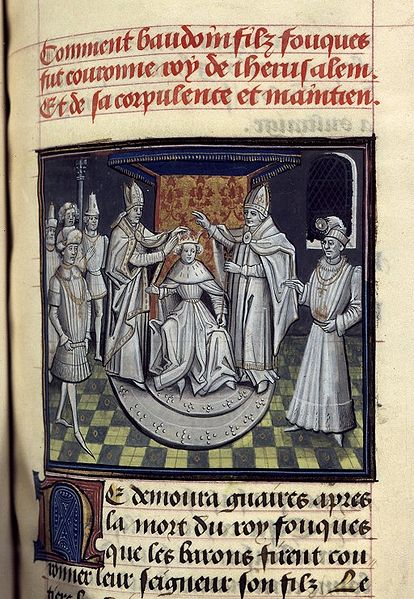 Comment baudoin filz fouques
fut couronne roy de iherusalem.
Et de sa corpulente et maintien.
Ne demoura guaires apres
la mort du roy fouques
que les barons firent cou
ronner leur seigneur son filz Le